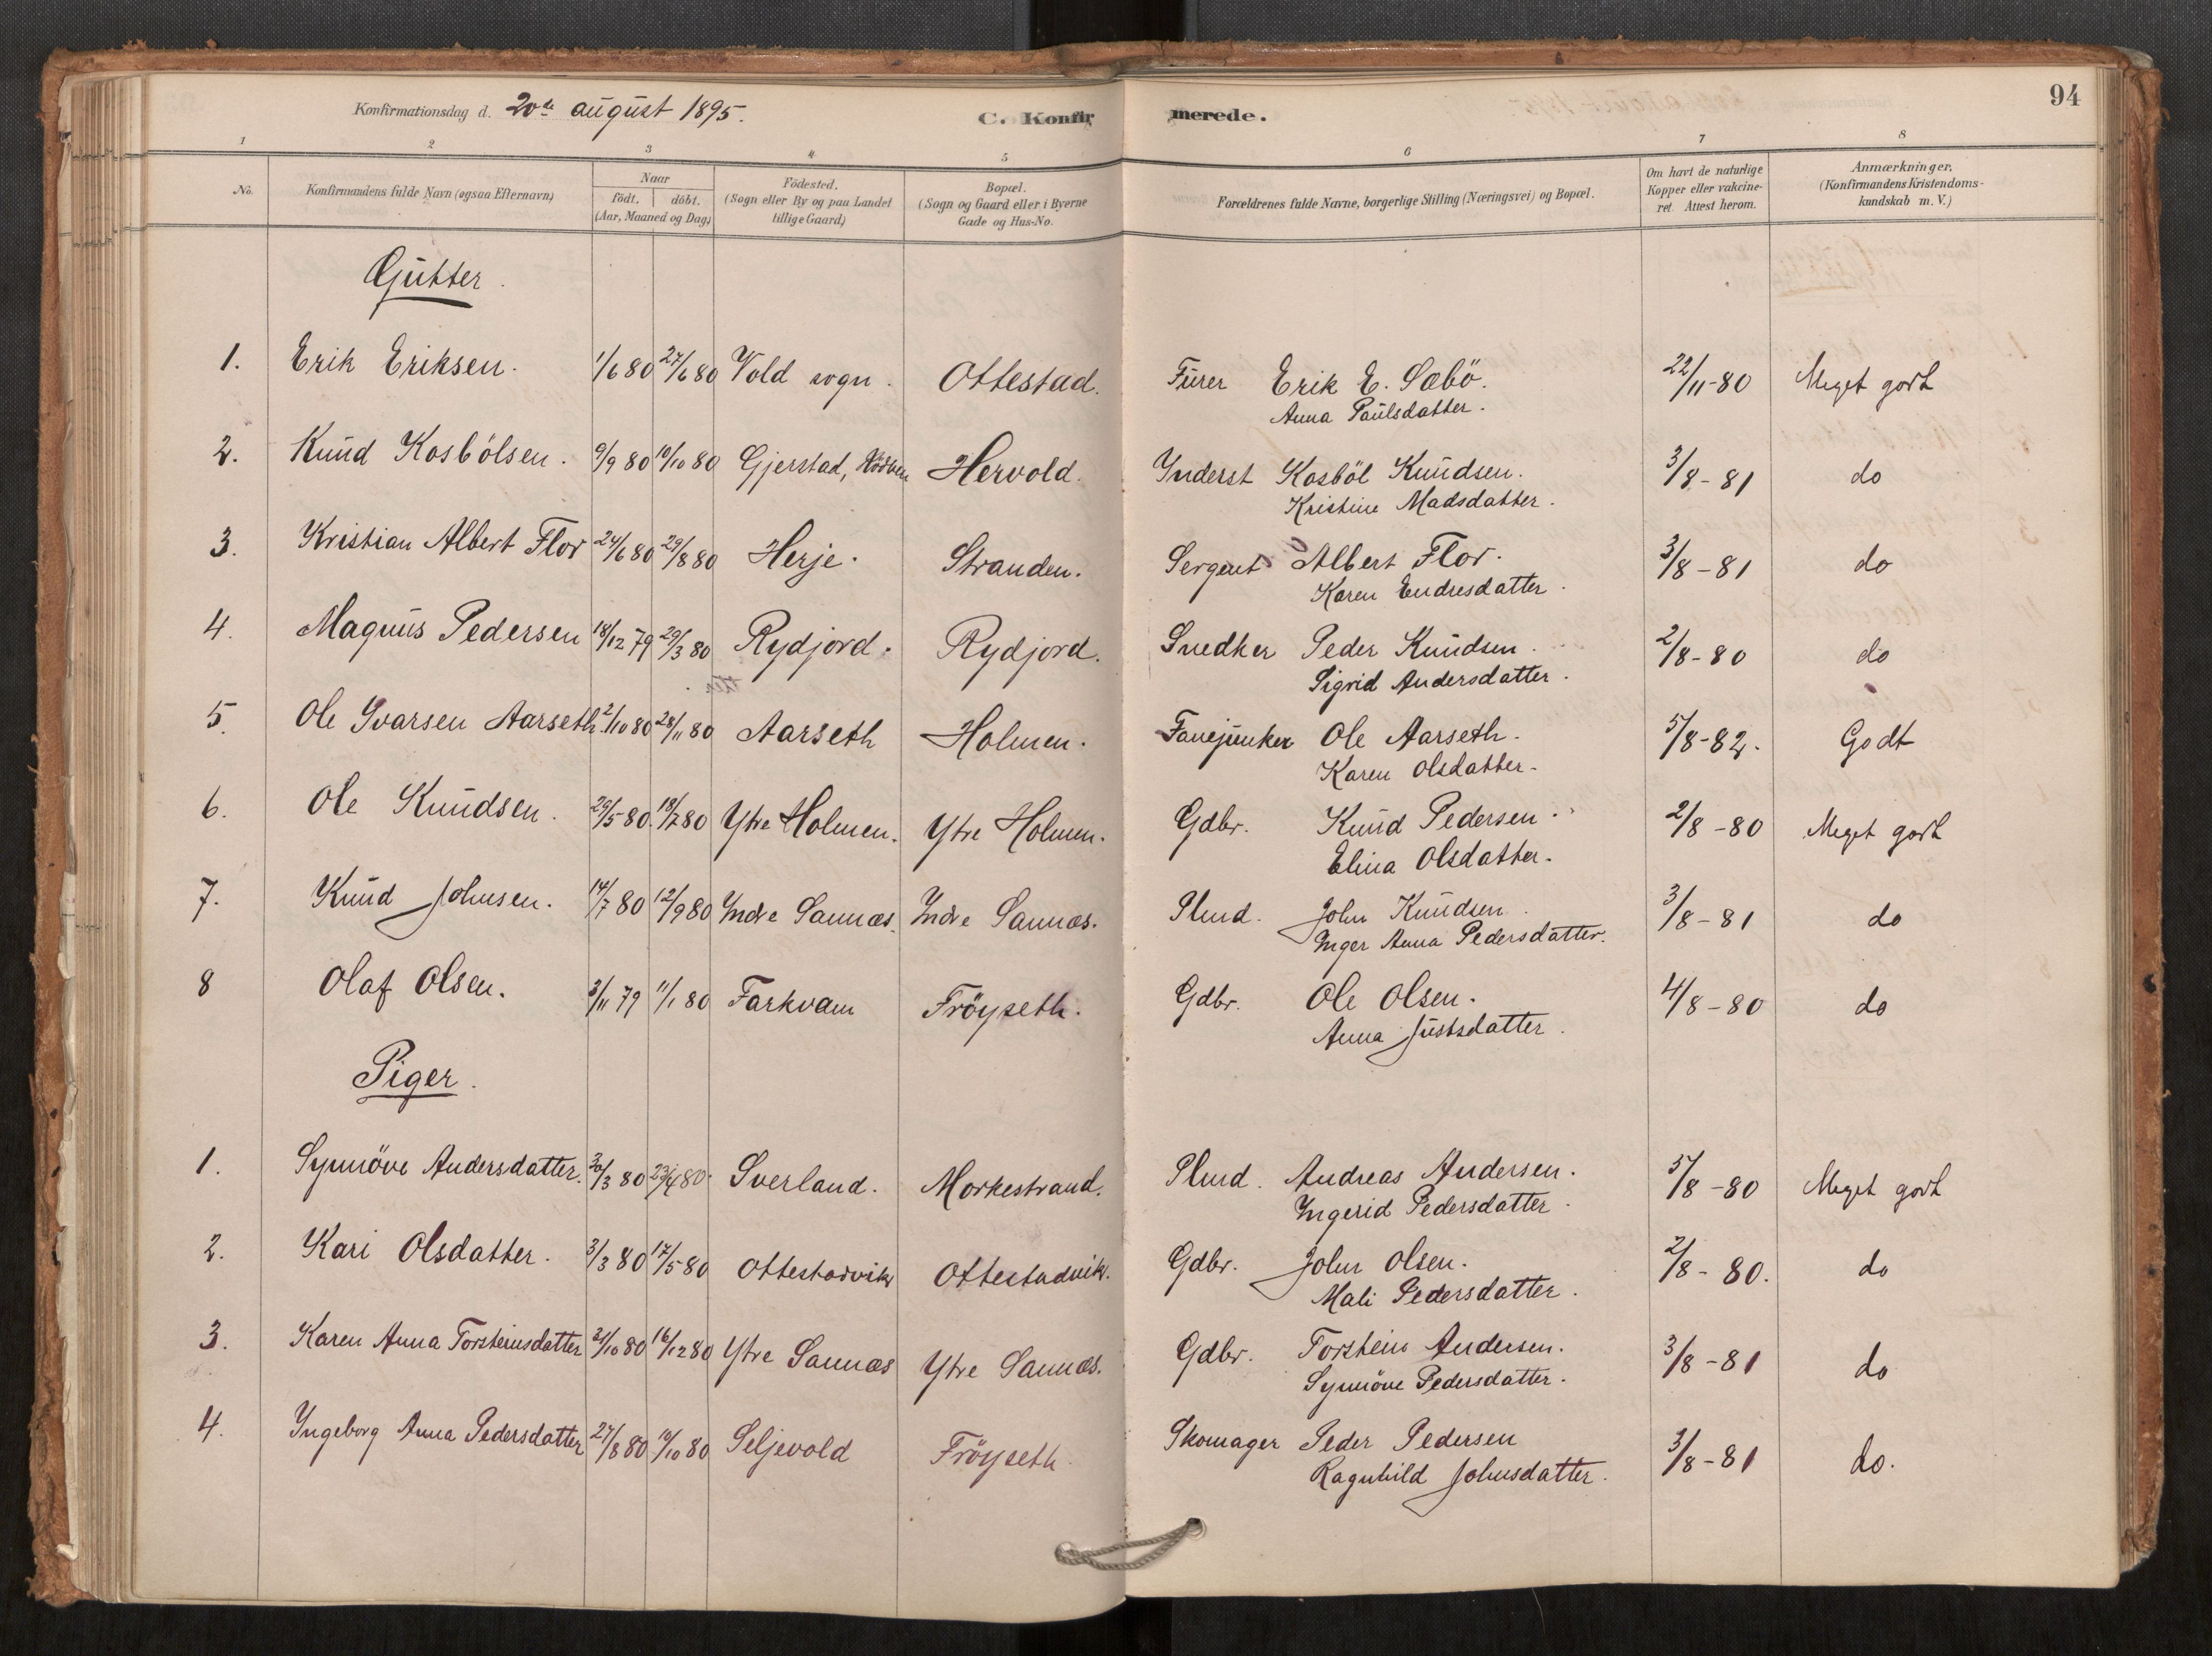 Konfirmationsdag d. 20de august 1895.
C. Konfirmerede.
94
1 2 3 4 5 6 7 8
No.
Konfirmandens fulde Navn (ogsaa Efternavn)
Naar
födt. döbt.
(Aar, Maaned og Dag)
Födested.
(Sogn eller By og paa Landet
tillige Gaard)
Bopæl.
(Sogn og Gaard eller i Byerne
Gade og Hus-No.
Forældrenes fulde Navne, borgerlige Stilling (Næringsvei) og Bopæl.
Om havt de naturlige
Kopper eller vakcine-
ret. Attest herom.
Anmærkninger,
(Konfirmandens Kristendoms-
kundskab m. V.)
Gutter.
1. Erik Eriksen. 1/6 80 27/6 80 Vold sogn. Ottestad. Furer Erik E. Sæbö. 22/11-80 Meget godt
Anna Paulsdatter.
2. Knud Kosbölsen. 9/9 80 10/10 80 Gjerstad, Rödven Hervold. Inderst Kosböl Knudsen. 3/8-81 do
Kristine Madsdatter.
3. Kristian Albert Flor 24/6 80 29/8 80 Herje. Stranden. Sergent Albert Flor. 3/8-81 do
Karen Endresdatter.
4. Magnus Pedersen 18/12 79 29/3 80 Rydjord. Rydjord. Snedker Peder Knudsen 2/8-80 do
Sigrid Andersdatter.
5. Ole Ivarsen Aarseth. 2/10 80 28/11 80 Aarseth Holmen. Fanejunker Ole Aarseth. 5/8-82. Godt
Karen Olsdatter.
6. Ole Knudsen. 29/5 80. 18/7 80 Ytre Holmen. Ytre Holmen. Gdbr. Knud Pedersen. 2/8-80 Meget godt
Elina Olsdatter.
7. Knud Johnsen. 14/7 80 12/9 80 Indre Sannæs. Indre Sannæs. Plmd. John Knudsen 3/8-81 do
Inger Anna Pedersdatter.
8 Olaf Olsen. 3/11 79 11/1 80 Farkvam Fröyseth. Gdbr. Ole Olsen. 4/8-80 do
Anna Justsdatter.
Piger.
1. Synnöve Andersdatter. 30/3 80 23/4 80. Sverland. Morkestrand. Plmd. Andreas Andersen. 5/8-80 Meget godt
Ingerid Pedersdatter.
2. Kari Olsdatter. 3/3 80 17/5 80 Ottestadvik Ottestadvik. Gdbr. John Olsen. 2/8-80. do
Mali Pedersdatter.
3. Karen Anna Torsteinsdatter 31/10 80 16/12 80 Ytre Sannæs Ytre Sannæs. Gdbr. Torstein Andersen. 3/8-81 do
Synnöve Pedersdatter.
4. Ingeborg Anna Pedersdatter 27/8 80 10/10 80 Seljevold Fröyseth Skomager Peder Pedersen 3/8-81 do.
Ragnhild Johnsdatter.